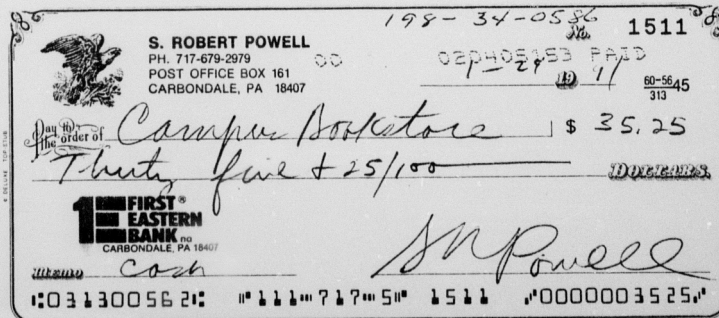 198-34-0586
No. 1511
S. ROBERT POWELL
PH. 717-679-2979
POST OFFICE BOX 161
CARBONDALE, PA 18407
00
020405153 PAID
1-29 19 11
60-5645
313
Pay to the order of Campus Bookstore $ 35.25
Thirty five + 25/100 DOLLARS
1E FIRST® EASTERN BANK na
CARBONDALE, PA 18407
Memo Cash
SRPowell
⑆031300562⑆ ⑈111⑉717⑉5⑈ 1511 ⑈0000003525⑈
DELUXE TOP STUB